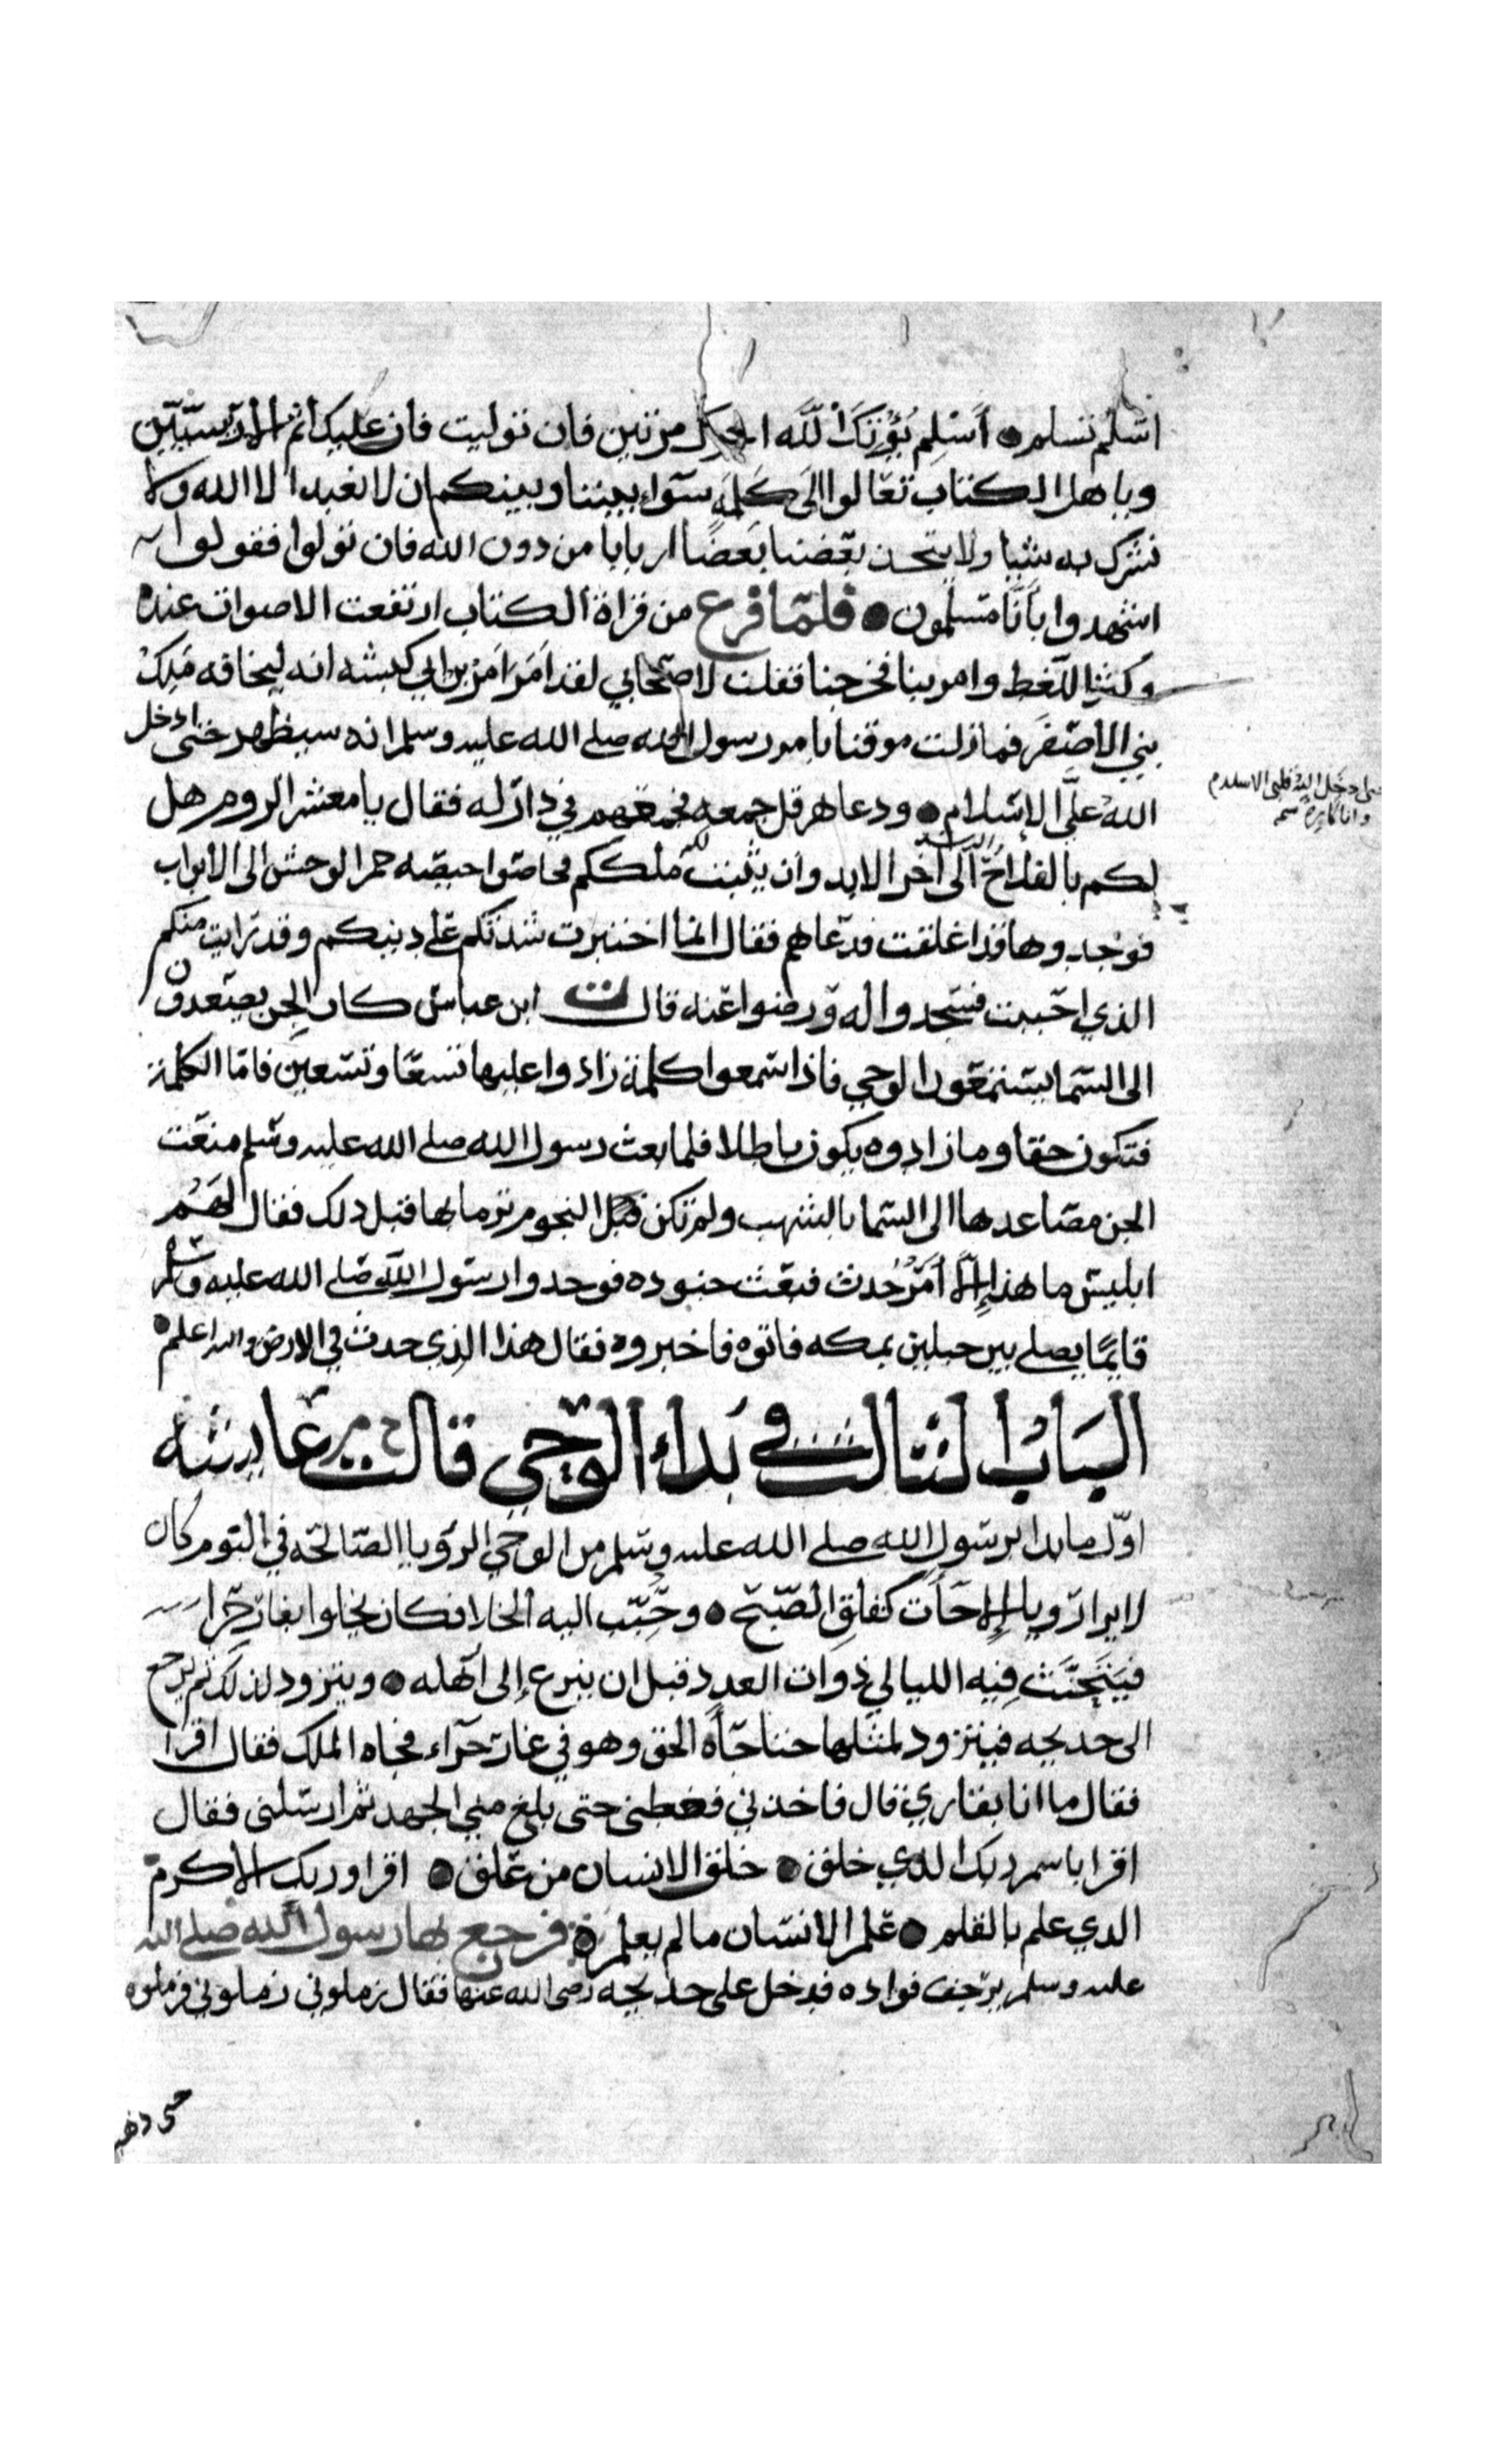 اسلم تسلم ● أَسْلِم يُؤْتِكَ اللَّه اجرك مرتين فان توليت فان عليك اثم الاريسيّين
ويا هل الكتاب تعالوا الى كلمة سواء بيننا وبينكم ان لا نعبد الا الله ولا
نشرك به شيا ولا يتخذ بعضنا بعضًا اربابا من دون الله فان تولوا فقولوا
اشهدوا بأنّا مسلمون ● فلمّا فرغ من قراة الكتاب ارتفعت الاصوات عنده
وكثر اللغط وامر بنا فخرجنا فقلت لاصحابي لقد امَرَ امْر بن ابي كبشه انه ليخافه مَلِكْ
بني الأصفر فما زلت موقنا بامر رسول الله صلى الله عليه وسلم انه سيظهر حتى ادخل
اللهُ علَّى الإسلام ● ودعا هرقل جمعه فجمعهم في دار له فقال يا معشر الروم هل
لكم بالفلاح الى آخر الابد وان يثبت ملككم فحاصوا حيصه حمر الوحش الى الأبواب
فوجدوها قد اغلقت فدعاهم فقال انما اختبرت شدتكم على دينكم وقد رايت منكم
الذي احببت فسجدوا له ورضوا عنه قال ابن عباس كان الجن يصعدون
الى السما يستمعون الوحي فاذا سمعوا كلمة زادوا عليها تسعًا وتسعين فامّا الكلمة
فتكون حقا وما زادوه يكون باطلا فلما بعث رسول الله صلى الله عليه وسلم منعت
الجن مصاعدها الى السما بالشهب ولم تكن قبل النجوم ترما بها قبل دلك فقال لهم
ابليس ما هذا إلّا أمرٌ حُدث فبعث جنوده فوجدوا رسول الله صلى الله عليه وسلم
قايمًا يصلى بين جبلين بمكه فاتوه فاخبروه فقال هذا الذي حدث في الارض والله اعلم ●
البَابُ الثالث في بَداءِ الوَحي قالت عايشه
اوّل ما بدا برسول الله صلى الله عليه وسلم من الوحي الرؤيا الصالحه في النوم كان
لا يرا رويا إلا جَأت كفلقِ الصّبح ● وحُبِّب اليه الخلا فكان يخلوا بغار حرا
فيتحنَّث فِيه الليالي ذوات العدد قبل ان ينزع إلى آهله ● ويتزود لذلك ثم يرجع
الى خديجه فيتزود لمثلها حتا جَأه الحق وهو في غار حرآء فجاه الملك فقال اقرا
فقال ما انا بقاري قال فاخذني فغطنى حتى بلغ مني الجهد ثم ارسلنى فقال
اقرا باسم ربك الدي خلق ● خلق الانسان من علق ● اقرا وربك الاكرم
الدي علم بالقلم ● علم الانسان ما لم يعلم ● فرجع بها رسول الله صلى الله
عليه وسلم يرجف فواده فدخل على خديجه رضى الله عنها فقال زملوني زملوني فزملوه
حتى ذهب